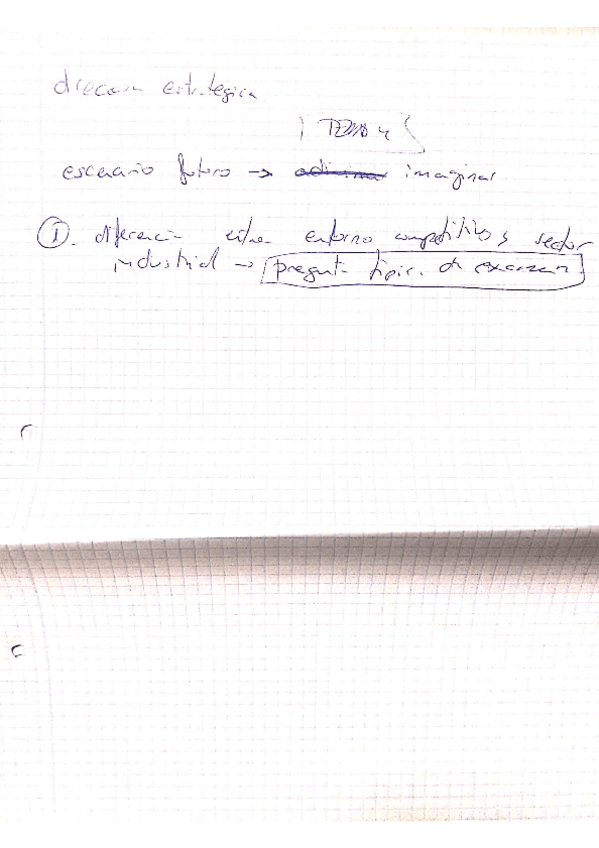 dirección estratégica
TEMA 4
escenario futuro → imaginar
①. diferencia entre entorno competitivo y sector
industrial → pregunta típica de examen